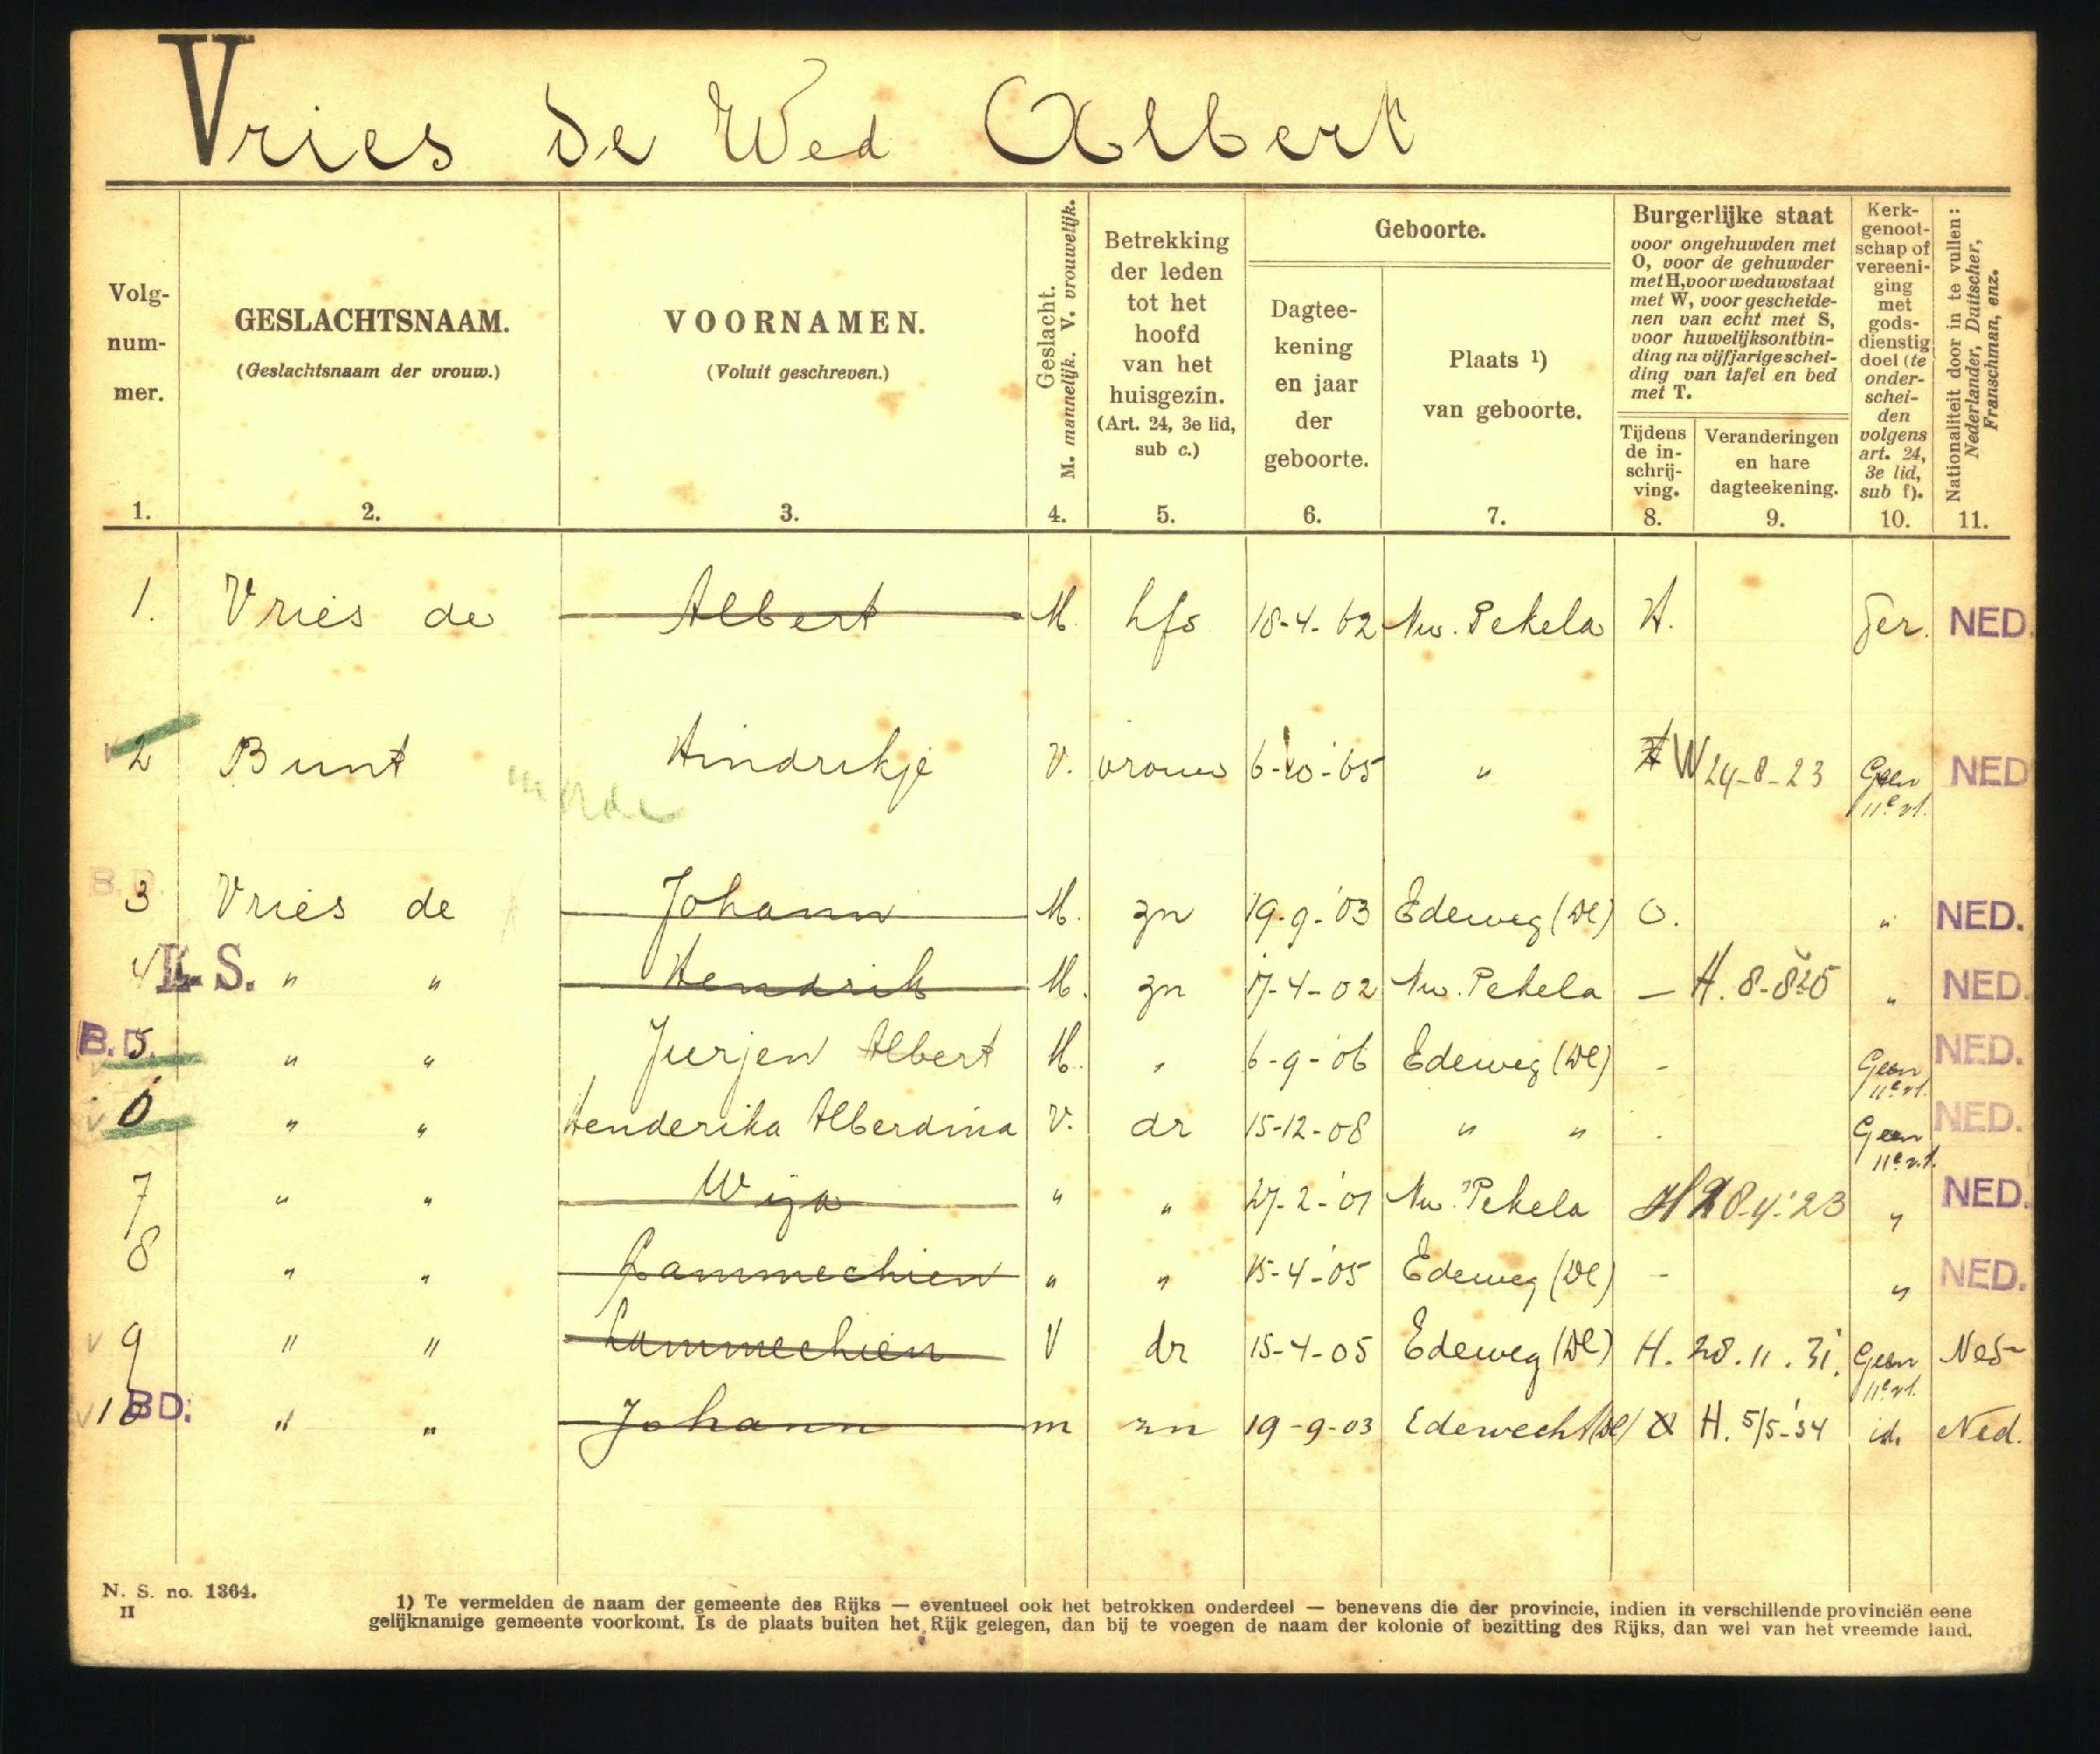 Vries de Wed Albert
Volg-
num-
mer.
1.
GESLACHTSNAAM.
(Geslachtsnaam der vrouw.)
2.
VOORNAMEN.
(Voluit geschreven.)
3.
Geslacht.
M. mannelijk. V. vrouwelijk.
4.
Betrekking
der leden
tot het
hoofd
van het
huisgezin.
(Art. 24, 3e lid,
sub c.)
5.
Geboorte.
Dagtee-
kening
en jaar
der
geboorte.
6.
Plaats ¹)
van geboorte.
7.
Burgerlijke staat
voor ongehuwden met
O, voor de gehuwder
met H, voor weduwstaat
met W, voor gescheide-
nen van echt met S,
voor huwelijksontbin-
ding na vijfjarige schei-
ding van tafel en bed
met T.
Tijdens
de in-
schrij-
ving.
8.
Veranderingen
en hare
dagteekening.
9.
Kerk-
genoot-
schap of
vereeni-
ging
met
gods-
dienstig
doel (te
onder-
schei-
den
volgens
art. 24,
3e lid,
sub f).
10.
Nationaliteit door in te vullen:
Nederlander, Duitscher,
Franschman, enz.
11.
1. Vries de Albert M. hfs 18-4-62 Nw. Pekela H. Ger. NED.
2 Bunt Hindrikje V. vrouw 6-10-65 " W 24-8-23 Geen NED
11e vt.
B.D. 3 Vries de Johann M. zn 19-9-'03 Edeweg (Dl) O. " NED.
4 L.S. " " Hendrik M. zn 17-4-02 Nw. Pekela — H. 8-8-25 " NED.
B.D. 5 " " Jurjen Albert M. " 6-9-'06 Edeweg (Dl) - Geen NED.
11e vt.
6 " " Henderika Alberdina V. dr 15-12-08 " " - Geen NED.
11e vt.
7 " " Wija " " 27-2-'01 Nw. Pekela H 28-4-'23 " NED.
8 " " Lammechien " " 15-4-'05 Edeweg (Dl) - " NED.
v 9 " " Lammechien V dr 15-4-05 Edeweg (Dl) H. 28.11.31. Geen Ned
11e vt.
v 10 BD. " " Johann m zn 19-9-03 Edewecht (Dl) H. 5/5-'34 id. Ned.
N. S. no. 1364.
II
1) Te vermelden de naam der gemeente des Rijks — eventueel ook het betrokken onderdeel — benevens die der provincie, indien in verschillende provinciën eene
gelijknamige gemeente voorkomt. Is de plaats buiten het Rijk gelegen, dan bij te voegen de naam der kolonie of bezitting des Rijks, dan wel van het vreemde land.